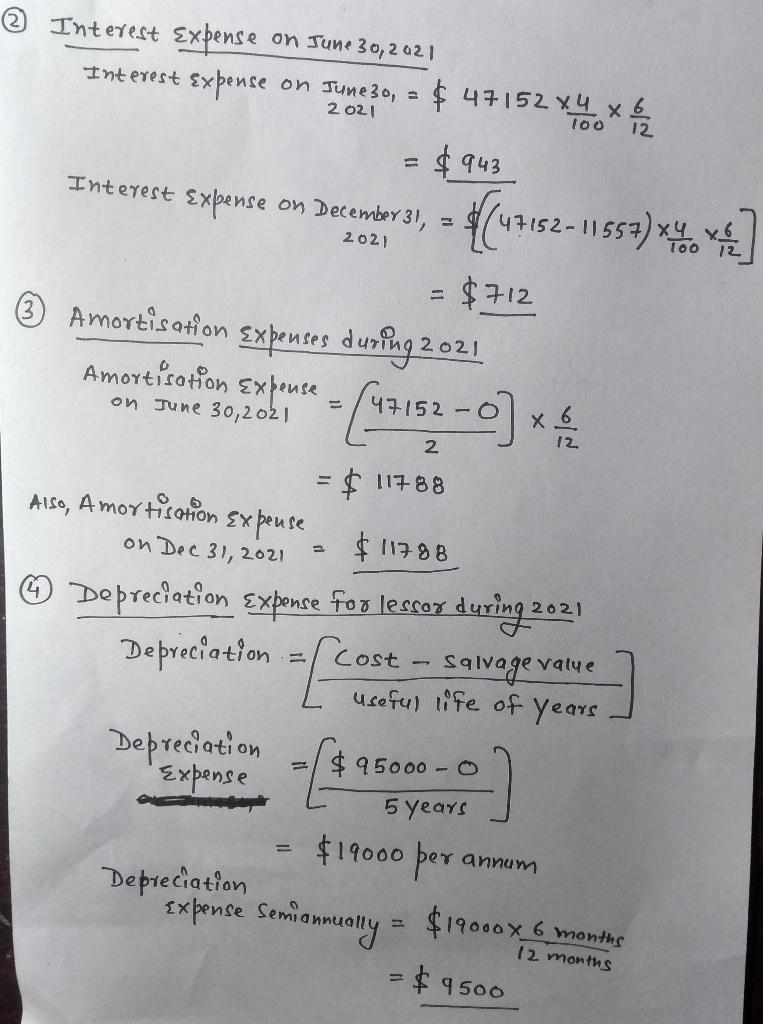 ② Interest Expense on June 30, 2021
Interest Expense on June 30, 2021 = $ 47152 x 4/100 x 6/12
= $ 943
Interest Expense on December 31, 2021 = $[(47152 - 11557) x 4/100 x 6/12]
= $ 712
③ Amortisation Expenses during 2021
Amortisation Expense on June 30, 2021 = [47152 - 0 / 2] x 6/12
= $ 11788
Also, Amortisation Expense on Dec 31, 2021 = $ 11788
④ Depreciation Expense for lessor during 2021
Depreciation = [Cost - salvage value / useful life of Years]
Depreciation Expense = [$ 95000 - 0 / 5 years]
= $19000 per annum
Depreciation Expense Semiannually = $19000 x 6 months / 12 months
= $ 9500